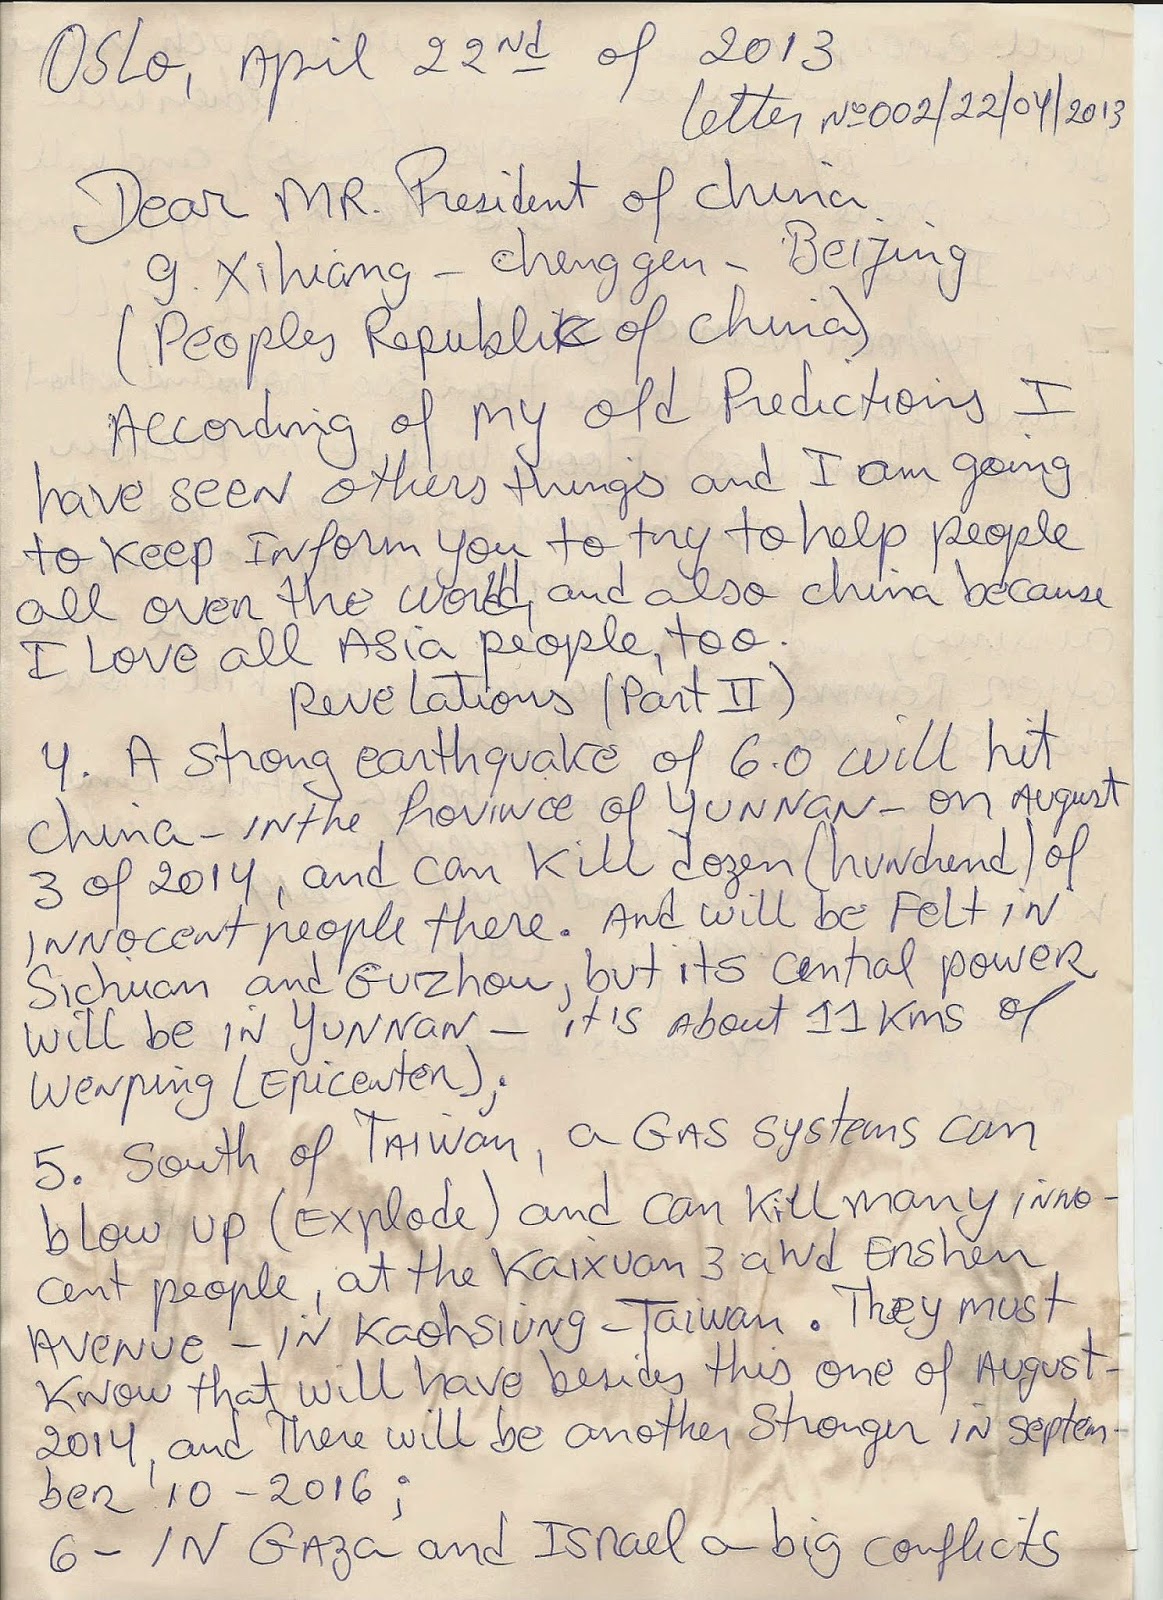 Oslo, April 22nd of 2013
Letter Nº002/22/04/2013
Dear MR. President of China
9. Xihiang - chenggen - Beijing
(Peoples Republik of China)
According of my old Predictions I
have seen others things and I am going
to keep Inform you to try to help people
all over the World, and also china because
I Love all ASIA people, too.
Revelations (Part II)
4. A strong earthquake of 6.0 will hit
China - in the Province of YUNNAN - on August
3 of 2014, and can kill dozen (hundrend) of
innocent people there. And will be Felt in
Sichuan and Guzhou, but its central power
will be in YUNNAN - it's about 11 Kms of
Wenping (Epicenter);
5. South of TAIWAN, a GAS systems can
blow up (Explode) and can kill many inno-
cent people, at the Kaixuan 3 and Enshen
Avenue - in Kaohsiung - Taiwan. They must
know that will have besides this one of August-
2014, and There will be another Stronger in Septem-
ber '10 - 2016;
6 - IN GAZA and ISRAEL a big conflicts